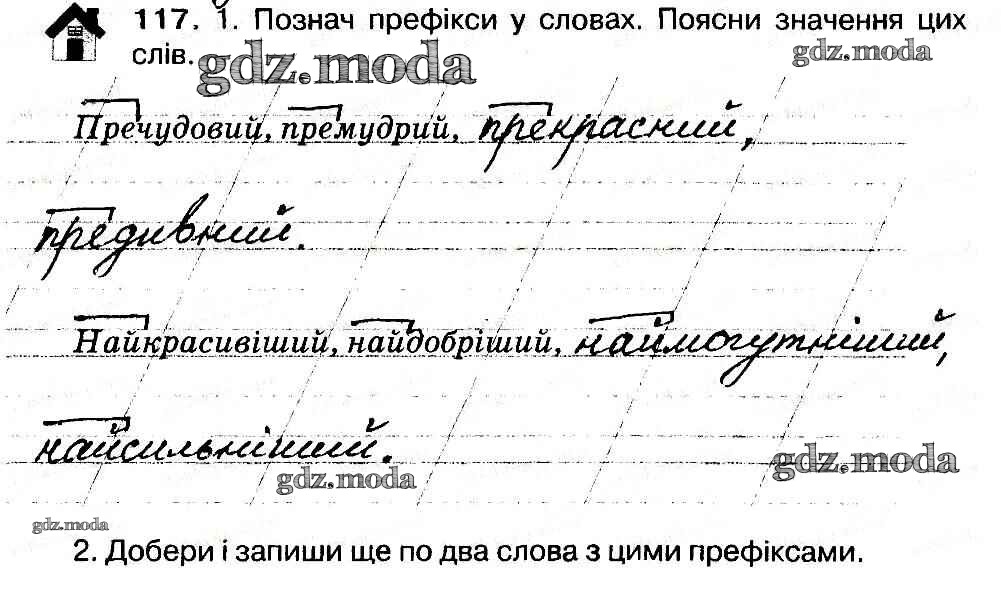 117. 1. Познач префікси у словах. Поясни значення цих
слів.
gdz.moda
gdz.moda
Пречудовий, премудрий, прекрасний,
предивний.
Найкрасивіший, найдобріший, наймогутніший,
найсильніший.
gdz.moda
gdz.moda
gdz.moda
2. Добери і запиши ще по два слова з цими префіксами.